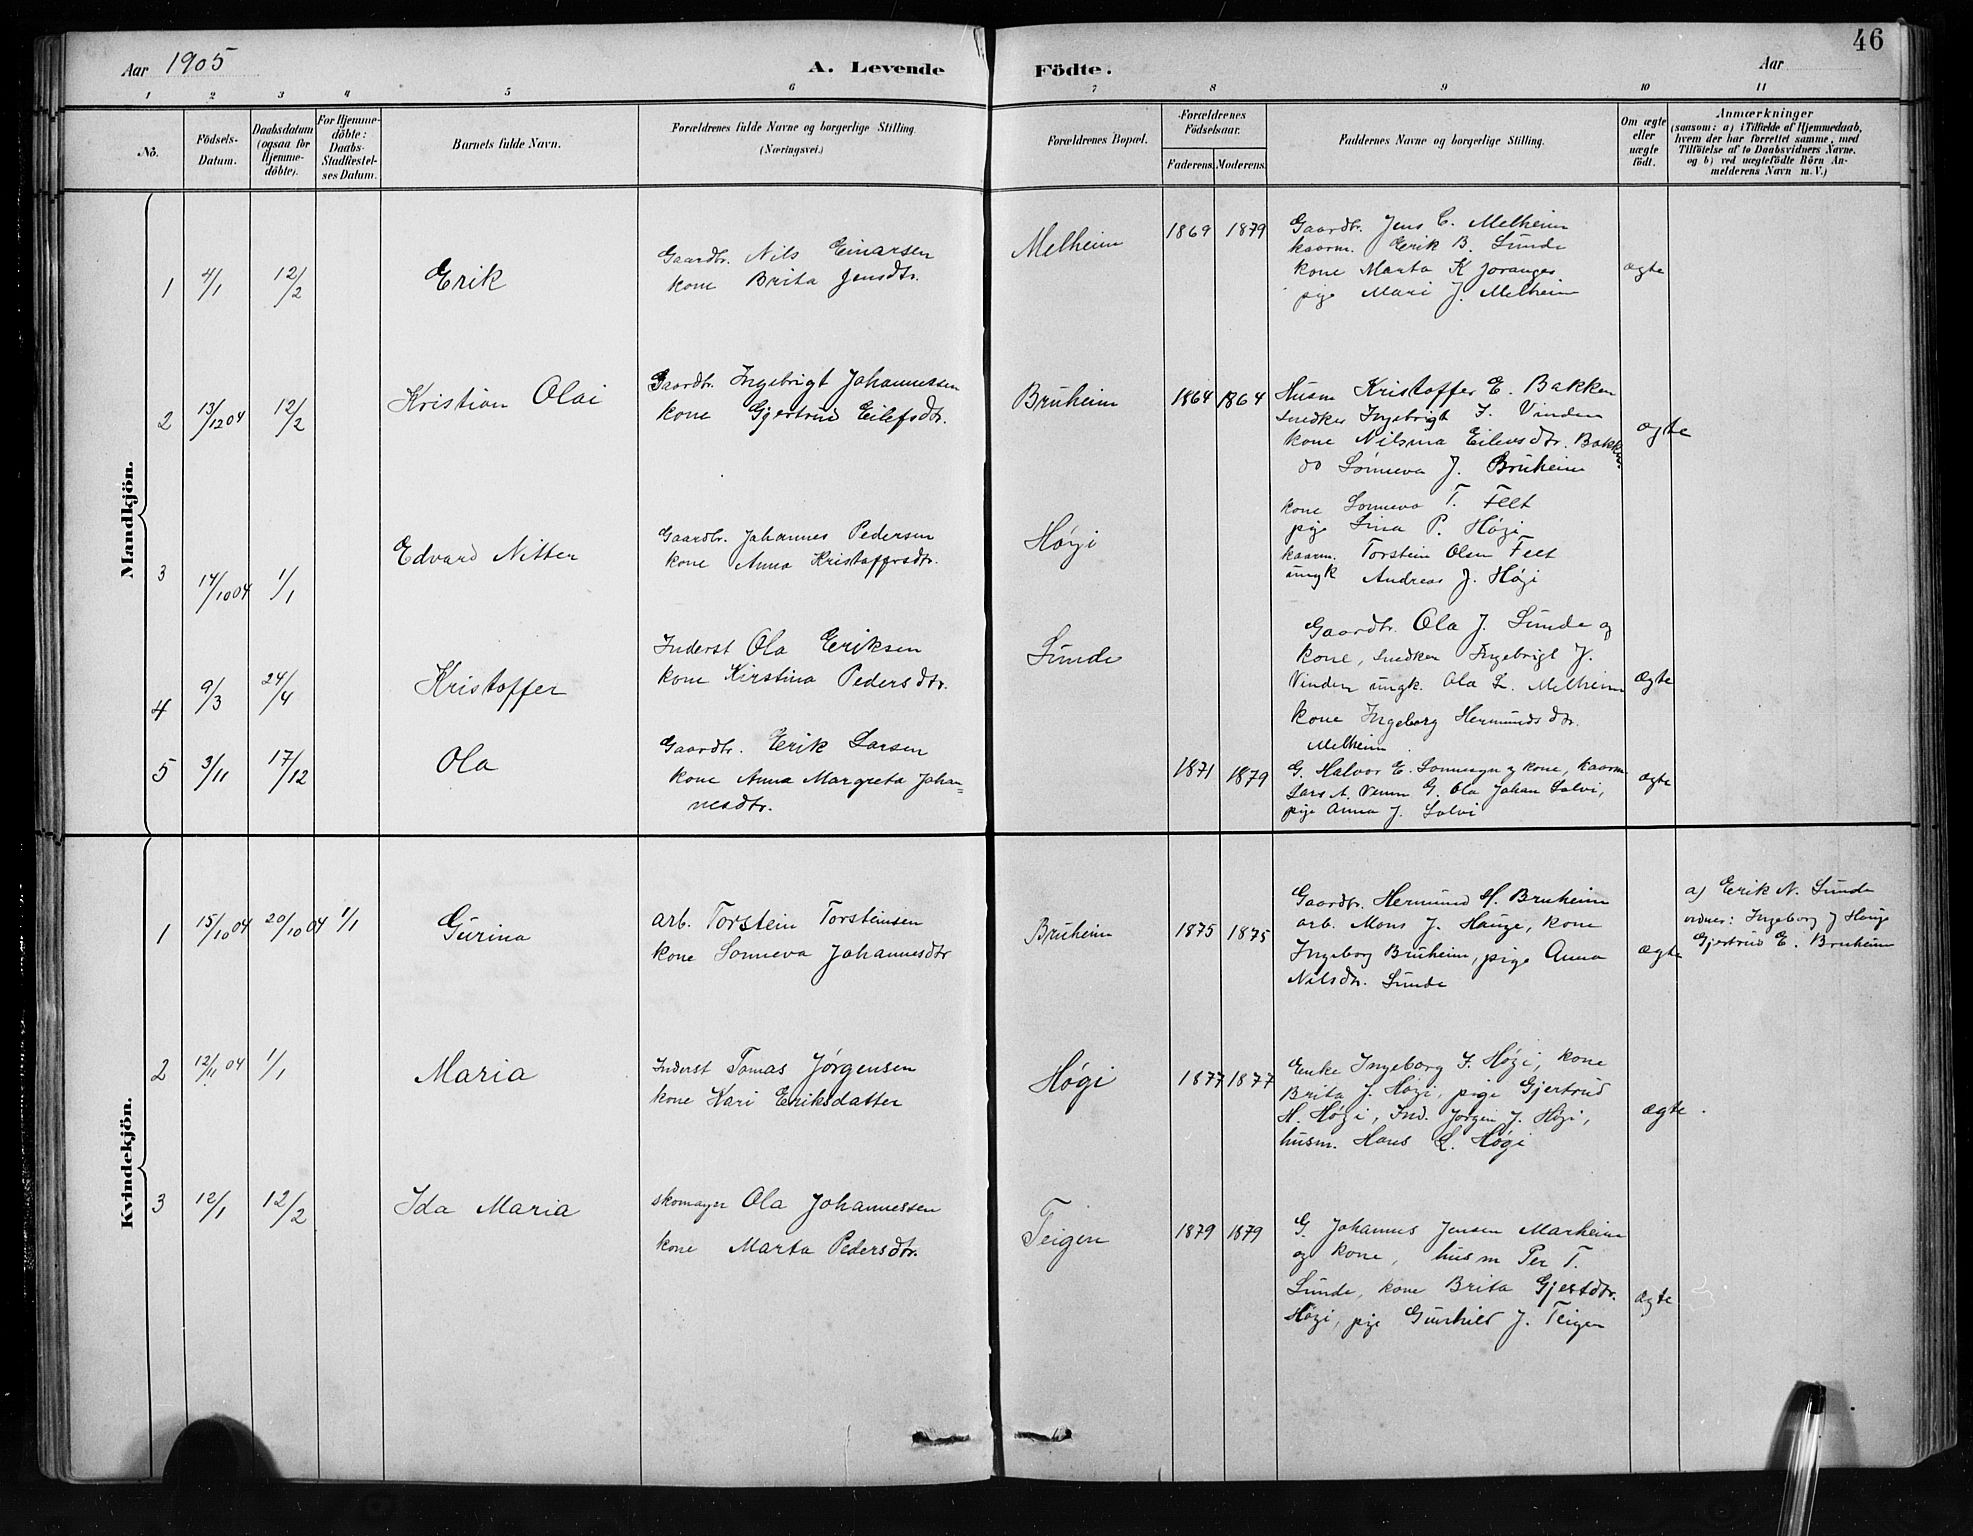 46
Aar 1905
A. Levende Födte.
Aar
1 2 3 4 5 6 7 8 9 10 11
Nô.
Födsels-Datum.
Daabsdatum (ogsaa for Hjemmedöbte).
For Hjemmedöbte: Daabs-Stadfæstelses Datum.
Barnets fulde Navn.
Forældrenes fulde Navne og borgerlige Stilling.
(Næringsvei.)
Forældrenes Bopæl.
Forældrenes Födselsaar.
Faderens. Moderens.
Faddernes Navne og borgerlige Stilling.
Om ægte eller uægte födt.
Anmærkninger
(saasom: a) i Tilfælde af Hjemmedaab, hvem der har forrettet samme, med Tilföielse af to Daabsvidners Navne. og b) ved uægtefödte Börn Anmelderens Navn m. V.)
Mandkjön.
1 4/1 12/2 Erik
Gaardbr. Nils Einarsen
kone Brita Jensdtr.
Melheim 1869 1879
Gaardbr. Jens C. Melheim
kaarm. Erik B. Sunde
kone Marta K Joranger
pige Mari J. Melheim
ægte
2 13/12 04 12/2 Kristian Olai
Gaardbr. Ingebrigt Johannessen
kone Gjertrud Eilefsdtr.
Bruheim 1864 1864
Husm Kristoffer E. Bakken
Snedker Ingebrigt J. Vinden
kone Nilsina Eilevsdtr. Bakken
do Sønneva J. Bruheim
ægte
3 14/10 04 1/1 Edvard Nitter
Gaardbr. Johannes Pedersen
kone Anna Kristoffersdtr.
Høgi
kone Sonneva T. Felt
pige Sina P. Høgi
kaarm. Torstein Olsen Felt
ungk Andreas J. Høgi
4 9/3 24/4 Kristoffer
Inderst Ola Eriksen
kone Kirstina Pedersdtr.
Sunde
Gaardbr. Ola J. Sunde og
kone, Snedker Ingebrigt J.
Vinden ungk. Ola L. Melheim
kone Ingeborg Hermundsdtr.
Melheim
ægte
5 3/11 17/12 Ola
Gaardbr. Erik Larsen
kone Anna Margreta Johan=
nesdtr.
1871 1879
G. Halvor E. og kone, kaarm
Lars A. G. Ola Johan Solvi,
pige Anna J. Solvi
ægte
Kvindekjön.
1 15/10 04 20/10 04 1/1 Gurina
arb. Torstein Torsteinsen
kone Sonneva Johannesdtr
Bruheim 1875 1875
Gaardbr. Hermund H. Bruheim
arb. Mons J. Hauge, kone
Ingeborg Bruheim, pige Anna
Nilsdtr. Sunde
ægte
a) Erik N. Sunde
vidner: Ingeborg J Hauge
Gjertrud E. Bruheim
2 12/11 04 1/1 Maria
Inderst Tomas Jørgensen
kone Kari Eriksdatter
Høgi 1877 1877
Enke Ingeborg J. Høgi, kone
Brita J. Høgi, pige Gjertrud
H. Høgi, Ind. Jørgen J. Høgi,
husm. Hans L. Høgi
ægte.
3 12/1 12/2 Ida Maria
skomager Ola Johannessen
kone Marta Pedersdtr.
Teigen 1879 1879
G. Johannes Jensen Marheim
og kone, husm Per T.
Sunde, kone Brita Gjertdtr.
Høgi, pige Gunhild J. Teigen
ægte